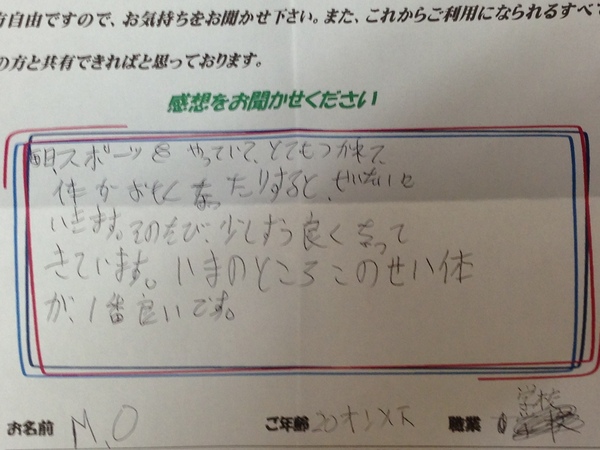 自由ですので、お気持ちをお聞かせ下さい。また、これからご利用になられるすべて
の方と共有できればと思っております。
感想をお聞かせください
毎日、スポーツを やっていて、とてもつかれて、
体がおもくなったりすると、せいたいに
いきます。そのたび、少しずつ良くなって
きています。いまのところこのせい体
が、1番良いです。
お名前 M.O ご年齢 20才以下 職業 学校